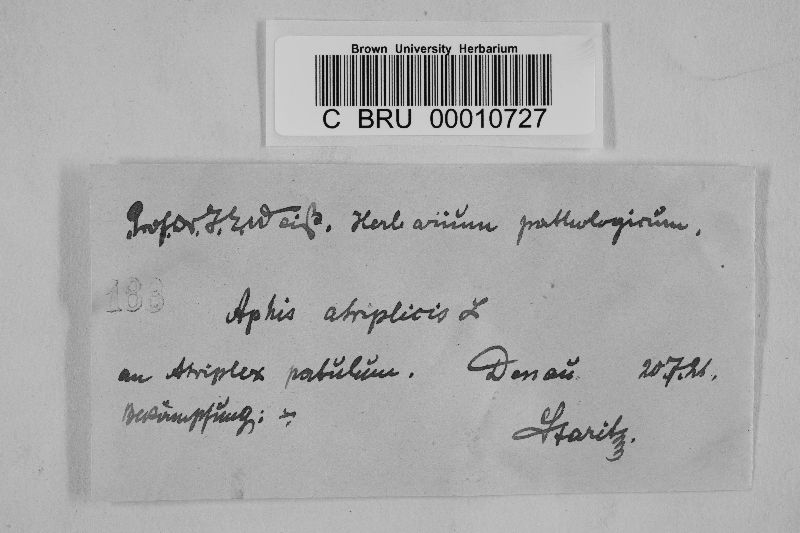 Brown University Herbarium
C BRU 00010727
Prof. Dr. J. E. Weiß. Herbarium pathologicum.
188
Aphis atriplicis L
an Atriplex patulum. Dessau 20.7.21.
Bekämpfung: -
Staritz.